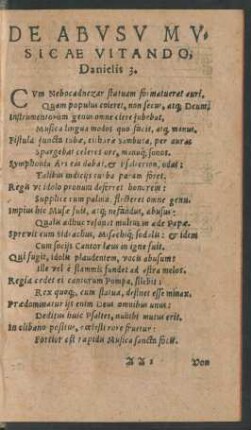 DE ABVSV MV-
SICAE VITANDO,
Danielis 3.
CVm Nebocadnezar statuam formatuerat auri,
Quam populus coleret, non secus, atq; Deum;
Instrumentorum genus omne ciere jubebat,
Musica lingua modos quo facit, atq; manus.
Fistula juncta tubæ, cithara & sambuca, per auras
Spargebat celeres ore, manuq; sonos.
Symphonia & his dabat, & Psalterion, odas:
Talibus indicijs turba param foret.
Regis ut idolo pronum deferret honorem:
Supplice cum palma flecteret omne genu.
Impius hic Musæ fuit, atq; nefandus, abusus:
Qualis adhuc resonat multus in æde Papæ.
Sprevit eum Sidrachus, Misachiq; sodalis: & idem
Cum socijs Cantor læsus in igne fuit.
Qui fugit, idoli plaudentem, vocis abusum:
Ille vel è flammis fundet ad astra melos.
Regia cedet ei cantorum Pompa, silebit:
Rex quoq; cum statua, desinet esse minax.
Prædominatur ijs enim Deus omnibus unus:
Deditus huic Psaltes, nullibi mutus erit.
In clibano positus, cælesti rore fruetur:
Fortior est rapido Musica sancta foco.
AA 1 Von